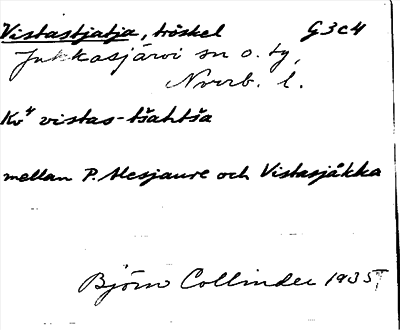 Vistastjatja, tröskel G3c4
Jukkasjärvi sn o. tg,
Norrb. l.
Kv⁴ vistas-tšahtša
mellan P. Alesjaure och Vistasjåkka
Björn Collinder 1935